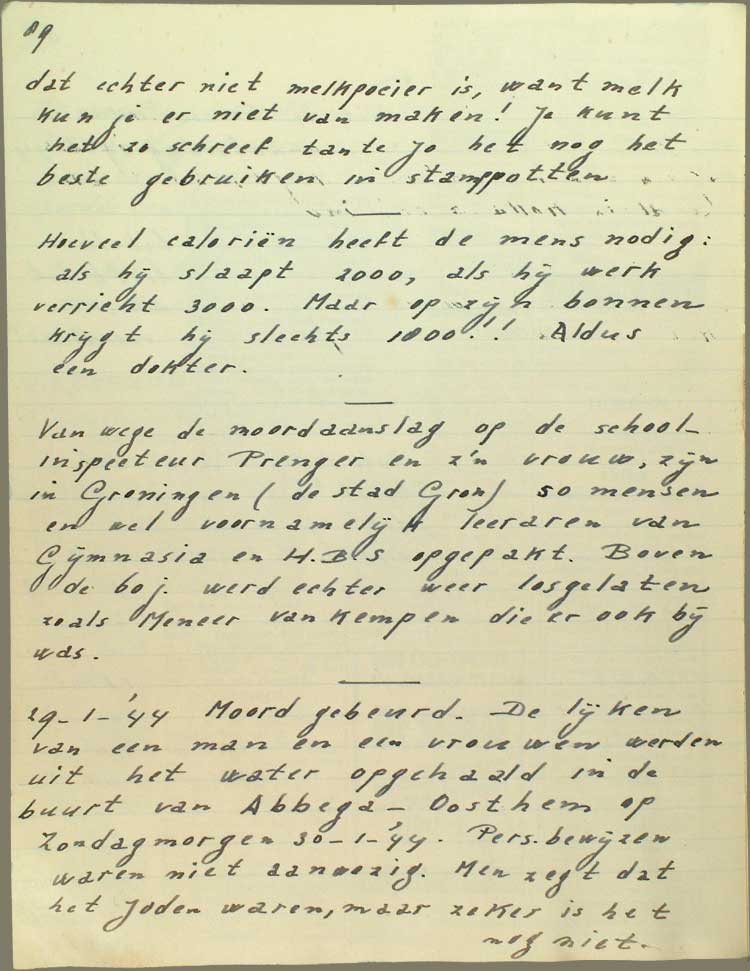 89
dat echter niet melkpoeier is, want melk
kun je er niet van maken! Je kunt
het zo schreef tante Jo het nog het
beste gebruiken in stamppotten
Hoeveel caloriën heeft de mens nodig:
als hij slaapt 2000, als hij werk
verricht 3000. Maar op zijn bonnen
krijgt hij slechts 1800!! Aldus
een dokter.
Van wege de moordaanslag op de school-
inspecteur Prenger en z'n vrouw, zijn
in Groningen (de stad Gron) 50 mensen
en wel voornamelijk leeraren van
Gymnasia en H.B.S opgepakt. Boven
de 60 j. werd echter weer losgelaten
zoals Meneer van Kempen die er ook bij
was.
29-1-'44 Moord gebeurd. De lijken
van een man en een vrouwen werden
uit het water opgehaald in de
buurt van Abbega - Oosthem op
Zondagmorgen 30-1-'44. Pers.bewijzen
waren niet aanwezig. Men zegt dat
het Joden waren, maar zeker is het
nog niet.